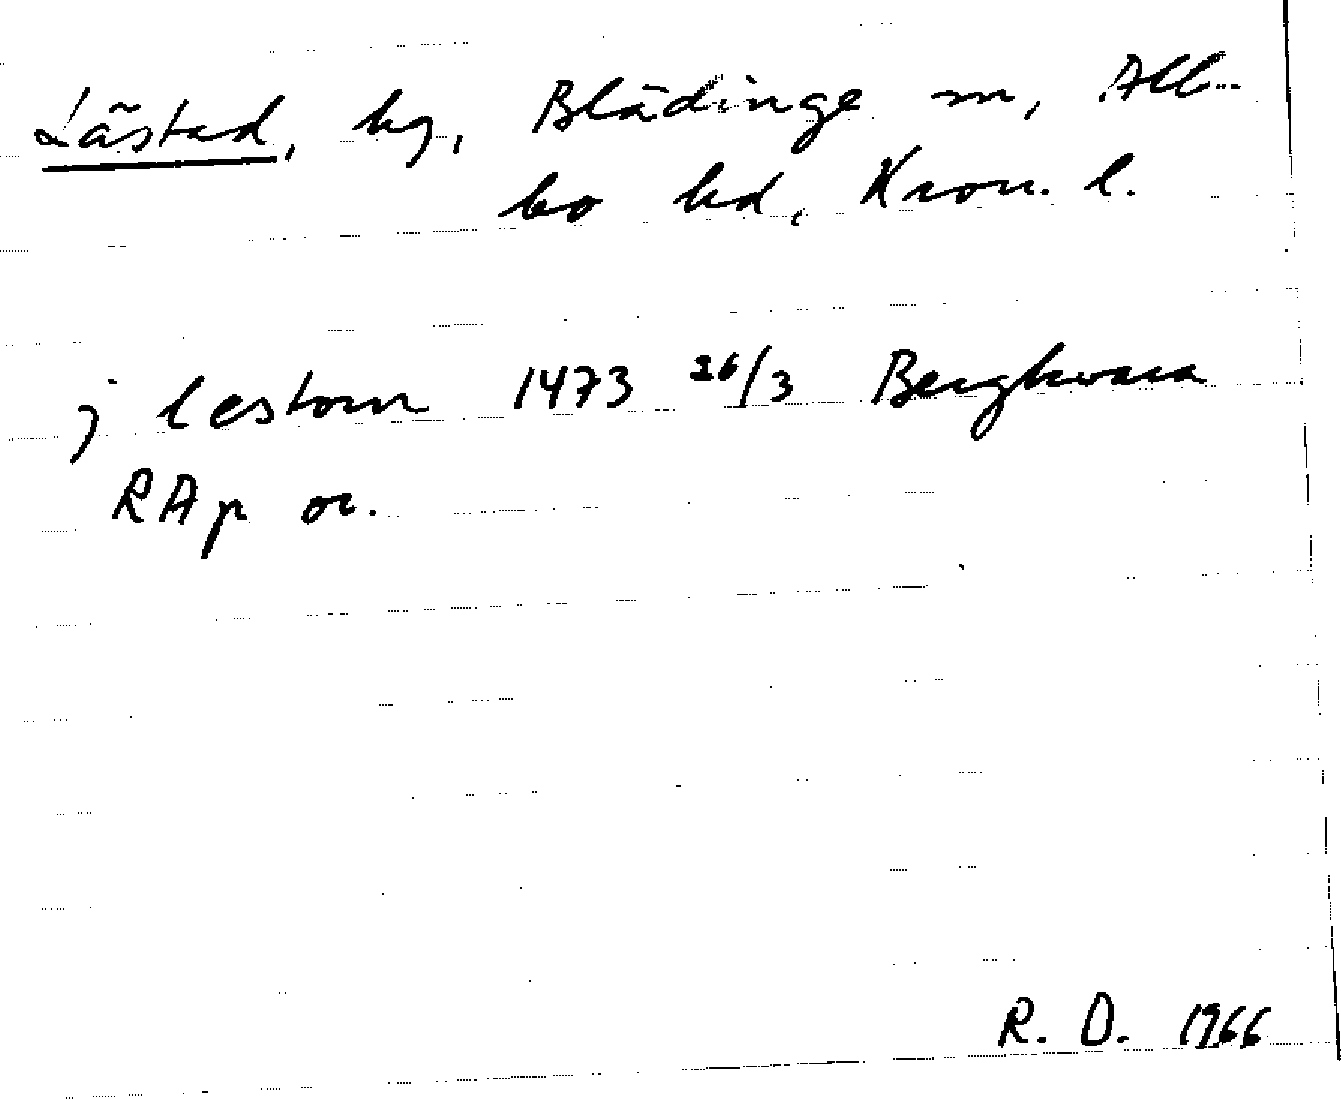 Lästad, by, Blädinge sn, All-
bo hd, Kron. l.
j lestom 1473 26/3 Bergkvara
RAp or.
R. O. 1966